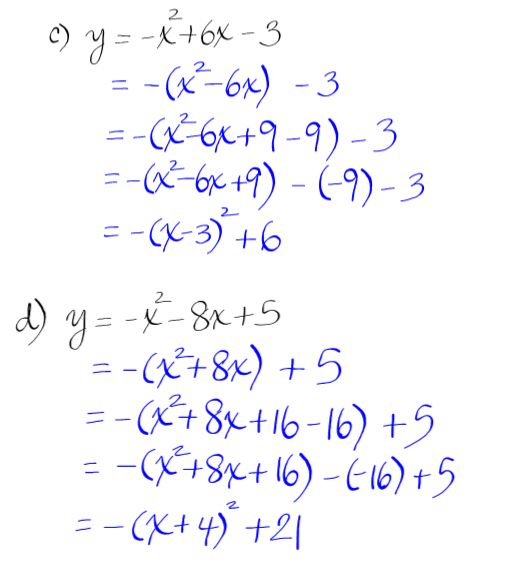 c) y = -x²+6x-3
= -(x²-6x) - 3
= -(x²-6x+9-9) - 3
= -(x²-6x+9) - (-9) - 3
= -(x-3)² + 6
d) y = -x²-8x+5
= -(x²+8x) + 5
= -(x²+8x+16-16) + 5
= -(x²+8x+16) - (-16) + 5
= -(x+4)² + 21